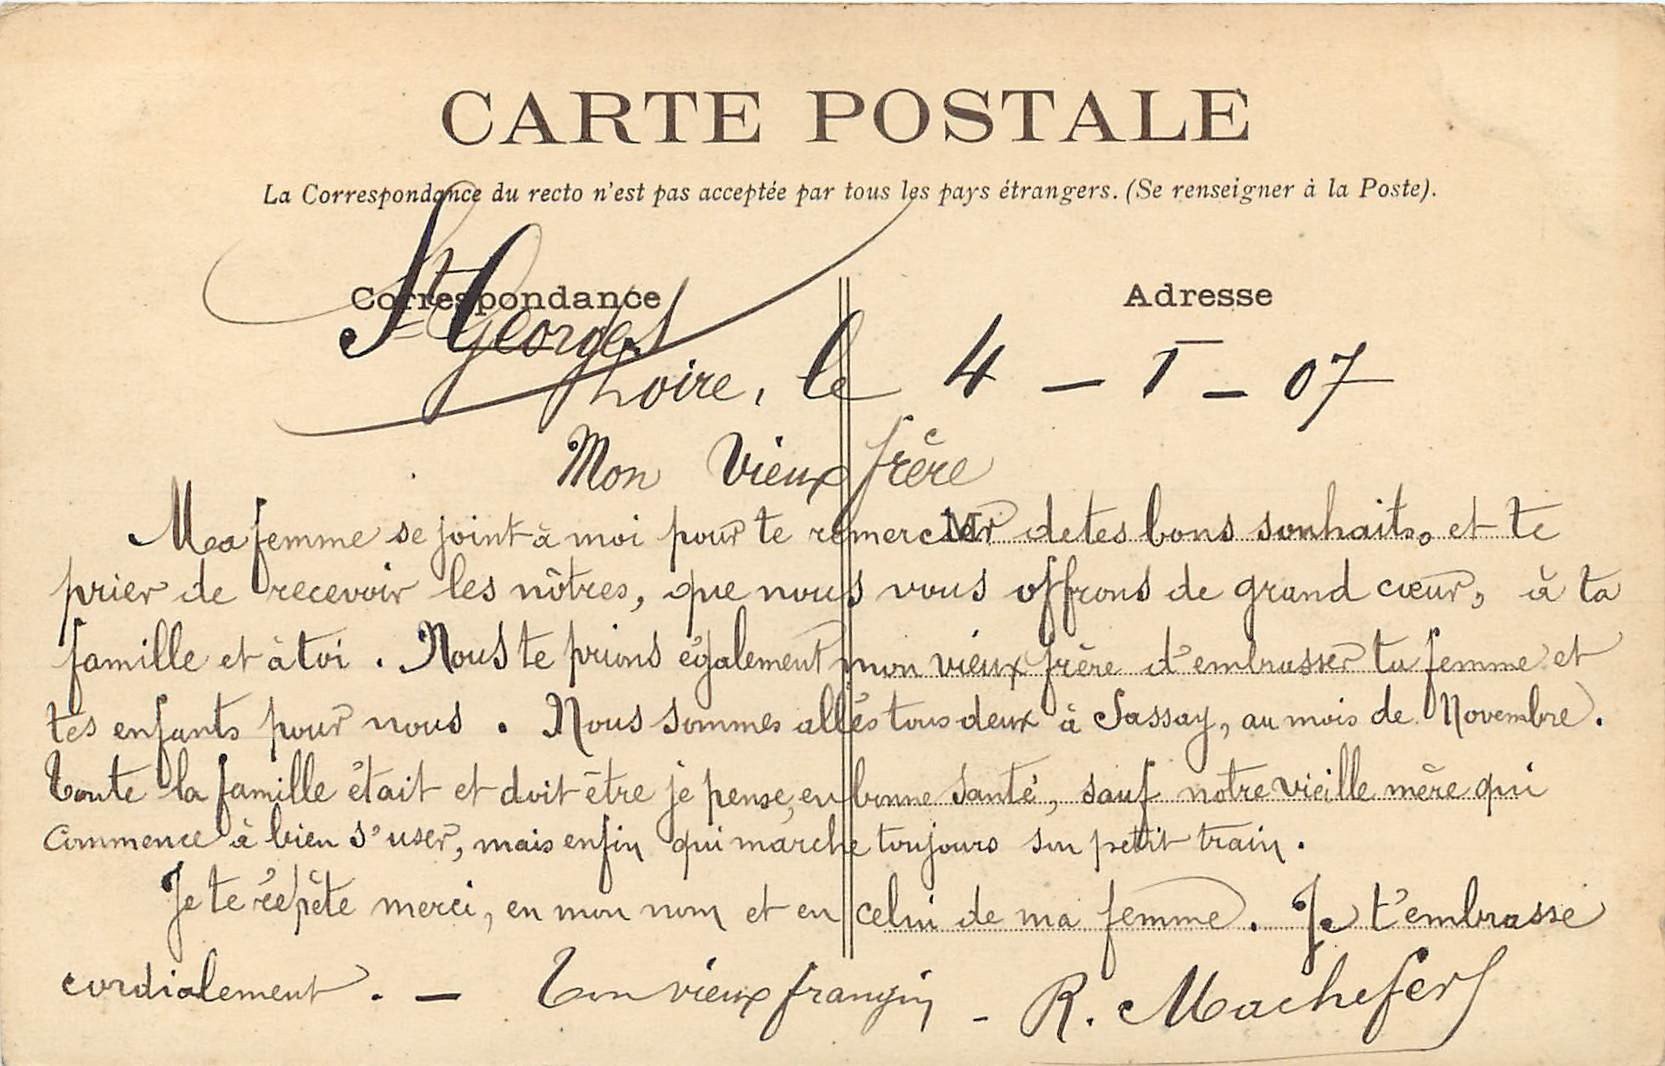 CARTE POSTALE
La Correspondance du recto n'est pas acceptée par tous les pays étrangers. (Se renseigner à la Poste).
Correspondance
Adresse
St Georges
Loire, le 4 - I - 07
Mon vieux frère
Ma femme se joint à moi pour te remercier de tes bons souhaits, et te
prier de recevoir les nôtres, que nous vous offrons de grand cœur, à ta
famille et à toi. Nous te prions également mon vieux frère d'embrasser ta femme et
tes enfants pour nous. Nous sommes allés tous deux à Sassay, au mois de Novembre.
Toute la famille était et doit être je pense, en bonne santé, sauf notre vieille mère qui
commence à bien s'user, mais enfin qui marche toujours son petit train.
Je te répète merci, en mon nom et en celui de ma femme. Je t'embrasse
cordialement. - Ton vieux frangin - R. Machefer
Mr